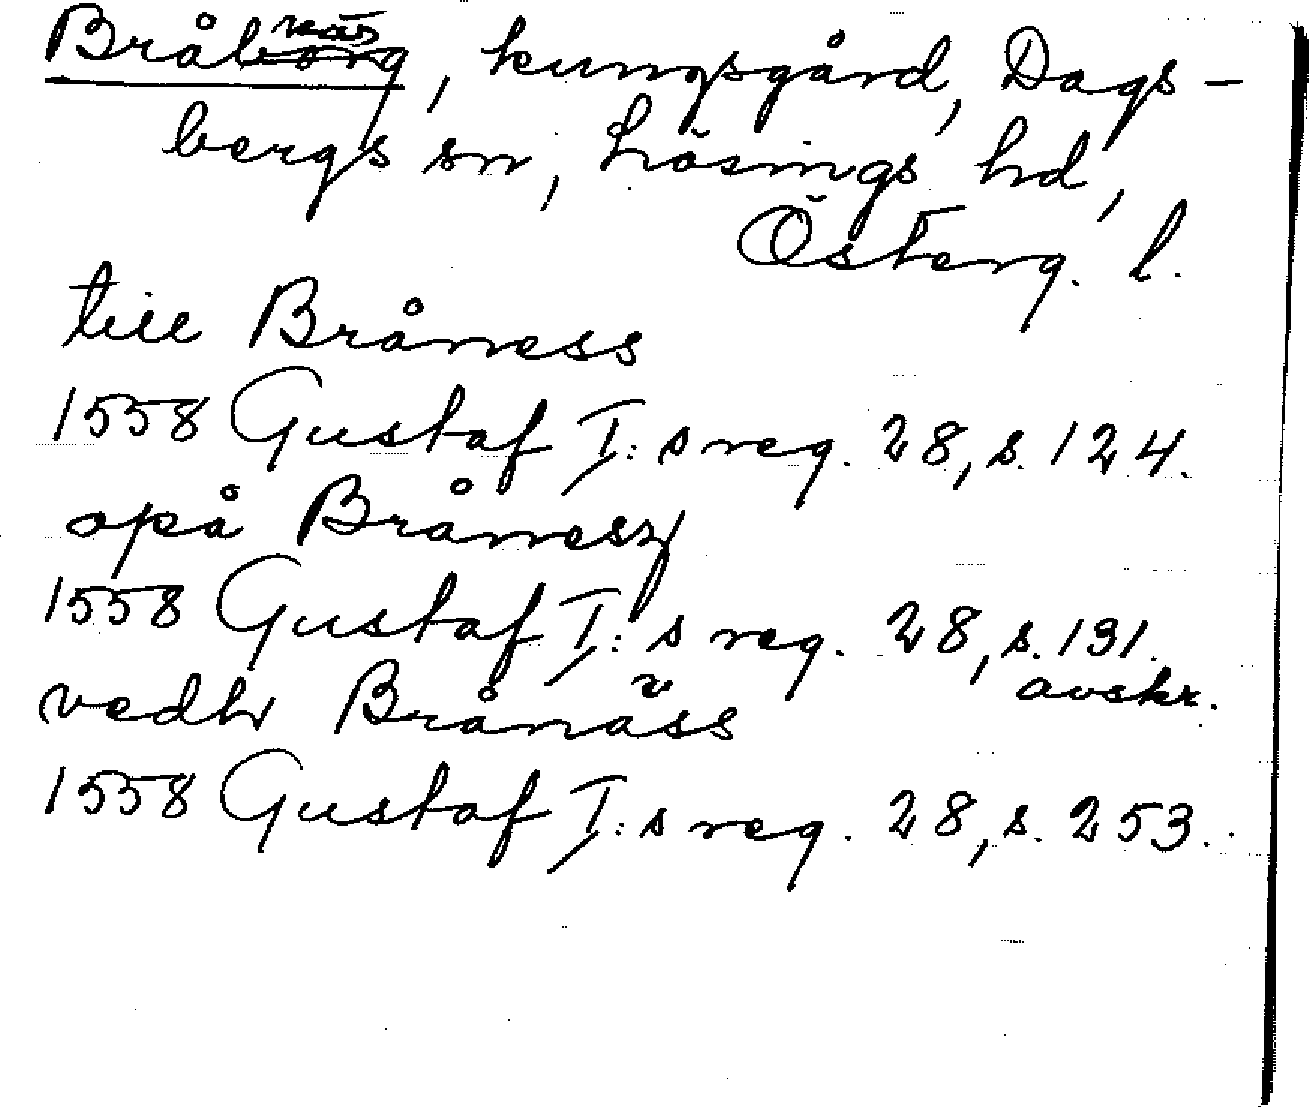 Bråborg näs, kungsgård, Dags-
bergs sn, Lösings hd,
Österg. l.
till Bråness
1558 Gustaf I:s reg. 28, s. 124.
opå Brånesz
1558 Gustaf I:s reg. 28, s. 131.
avskr.
vedh Brånäss
1558 Gustaf I:s reg. 28, s. 253.